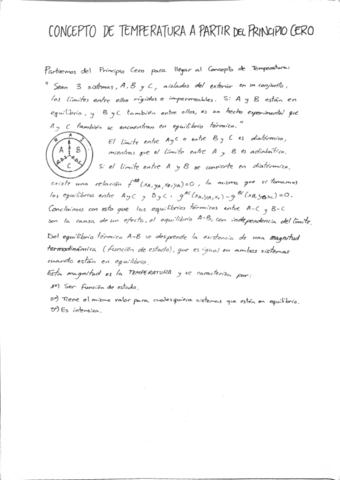 CONCEPTO DE TEMPERATURA A PARTIR DEL PRINCIPIO CERO
Partiremos del Principio Cero para llegar al Concepto de Temperatura:
"Sean 3 sistemas, A, B y C, aislados del exterior en su conjunto,
los límites entre ellos rígidos e impermeables. Si A y B están en
equilibrio, y B y C también entre ellos, es un hecho experimental que
A y C también se encuentran en equilibrio térmico."
A B C
El límite entre A y C o entre B y C es diatérmico,
mientras que el límite entre A y B es adiabático.
Si el límite entre A y B se convierte en diatérmico,
existe una relación =0, lo mismo que si tomamos
los equilibrios entre A y C y B y C:
Concluimos con esto que los equilibrios térmicos entre A-C y B-C
son la causa de un efecto, el equilibrio A-B, con independencia del límite.
Del equilibrio térmico A-B se desprende la existencia de una magnitud
termodinámica (función de estado), que es igual en ambos sistemas
cuando están en equilibrio.
Esta magnitud es la TEMPERATURA y se caracteriza por:
1º) Ser función de estado.
2º) Tiene el mismo valor para cualesquiera sistemas que estén en equilibrio.
3º) Es intensiva.